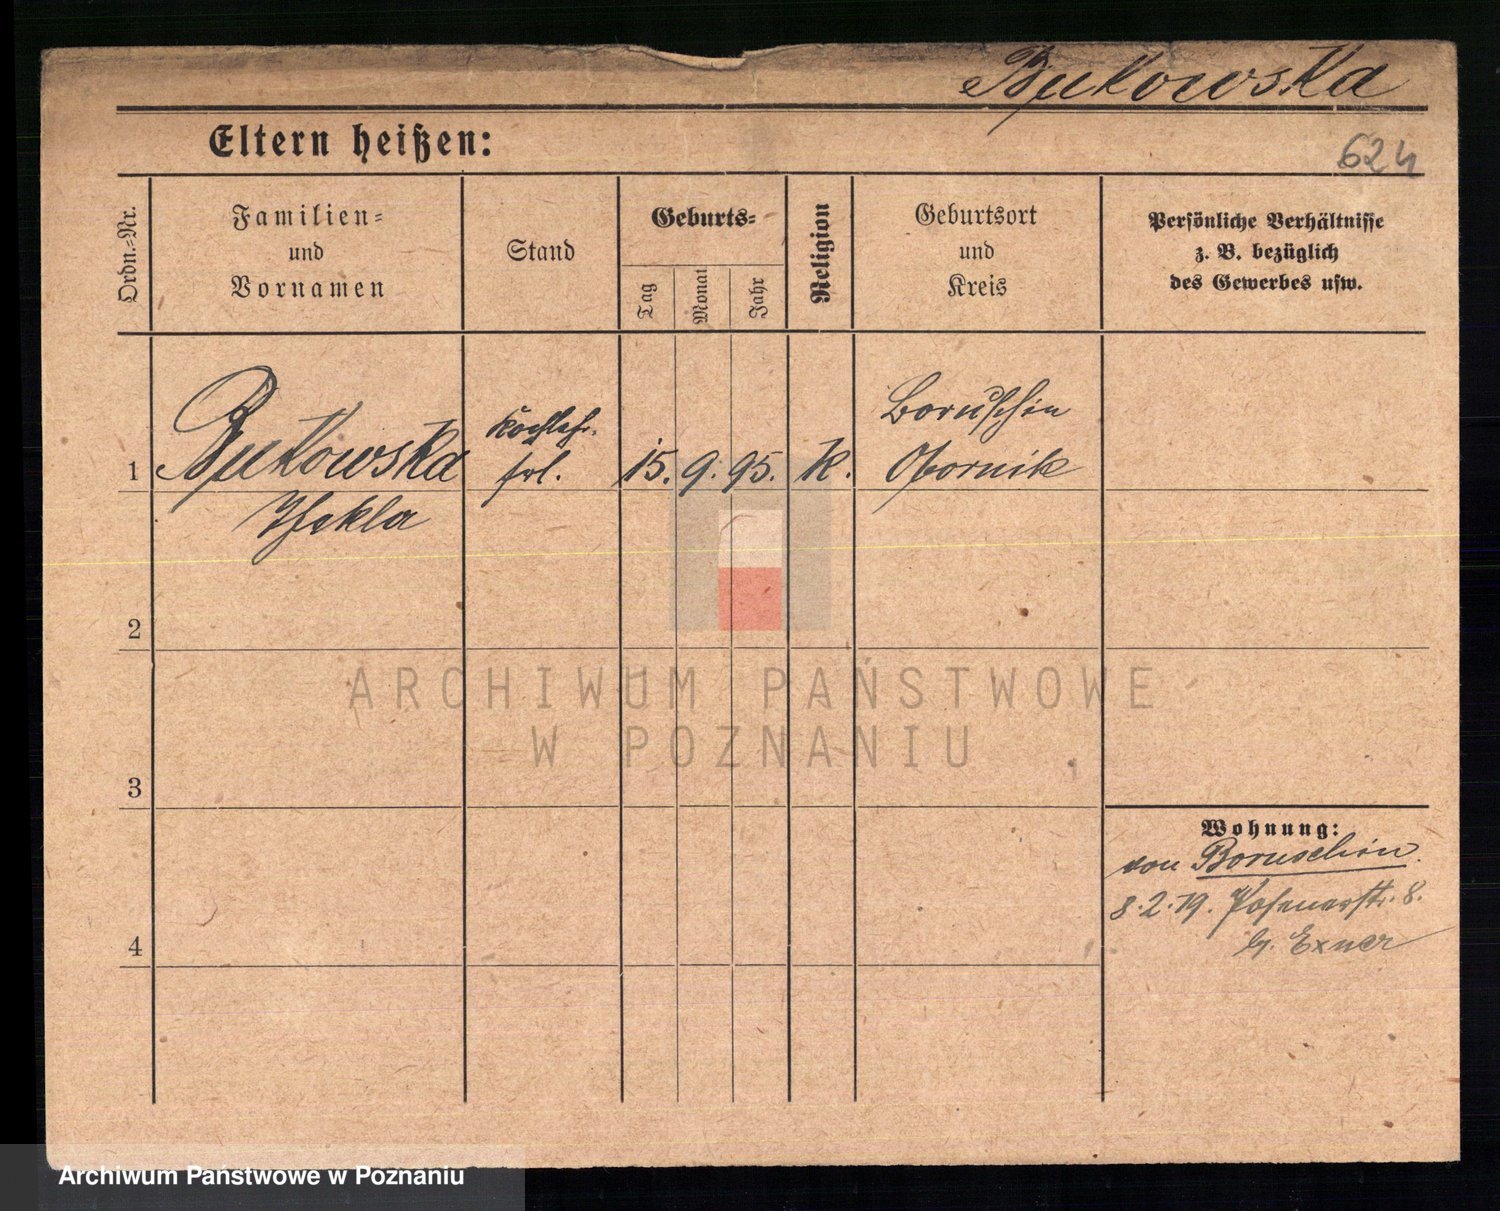 Bukowska
Eltern heißen:
624
Ordn.=Nr.
Familien=
und
Vornamen
Stand
Geburts=
Tag
Monat
Jahr
Religion
Geburtsort
und
Kreis
Persönliche Verhältnisse
z. B. bezüglich
des Gewerbes usw.
1
Bukowska
Thekla
frl.
15. 9. 95.
K.
Boruschin
Obornik
2
3
4
Wohnung:
von Boruschin.
8.2.19. Posenerstr. 8.
b. Exner
ARCHIWUM PAŃSTWOWE
W POZNANIU
Archiwum Państwowe w Poznaniu